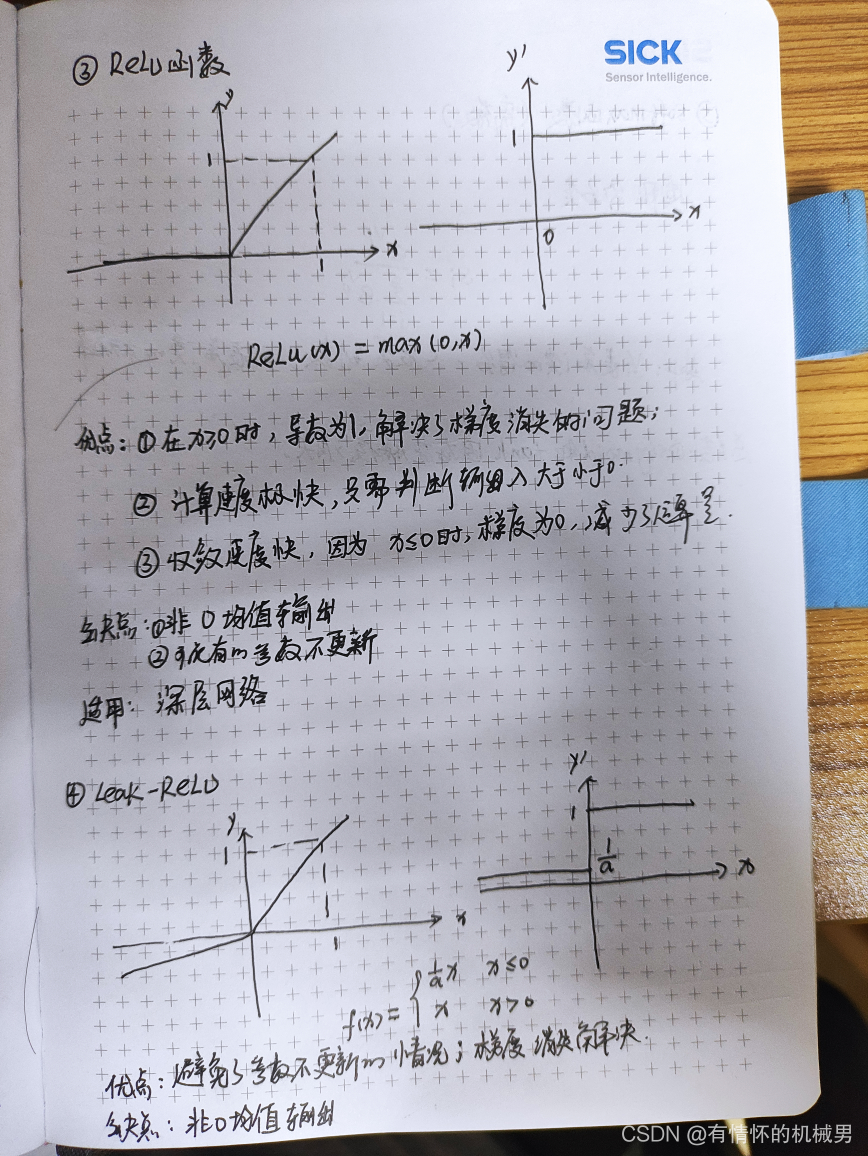 SICK
Sensor Intelligence.
③ ReLU函数
y
1
1
x
y'
1
0
x
ReLu(x) = max(0,x)
优点：①在x≥0时，导数为1，解决了梯度消失的问题；
② 计算速度极快，只需判断输入大于小于0.
③ 收敛速度快，因为 x≤0时，梯度为0，减少了运算量.
缺点：①非0均值输出
②可能有的参数不更新
适用：深层网络
④ Leak-ReLU
y
1
1
x
y'
1
1/a
x
f(x) = { 1/a x x≤0
x x>0
优点：避免了参数不更新的情况；梯度消失解决.
缺点：非0均值输出
CSDN @有情怀的机械男